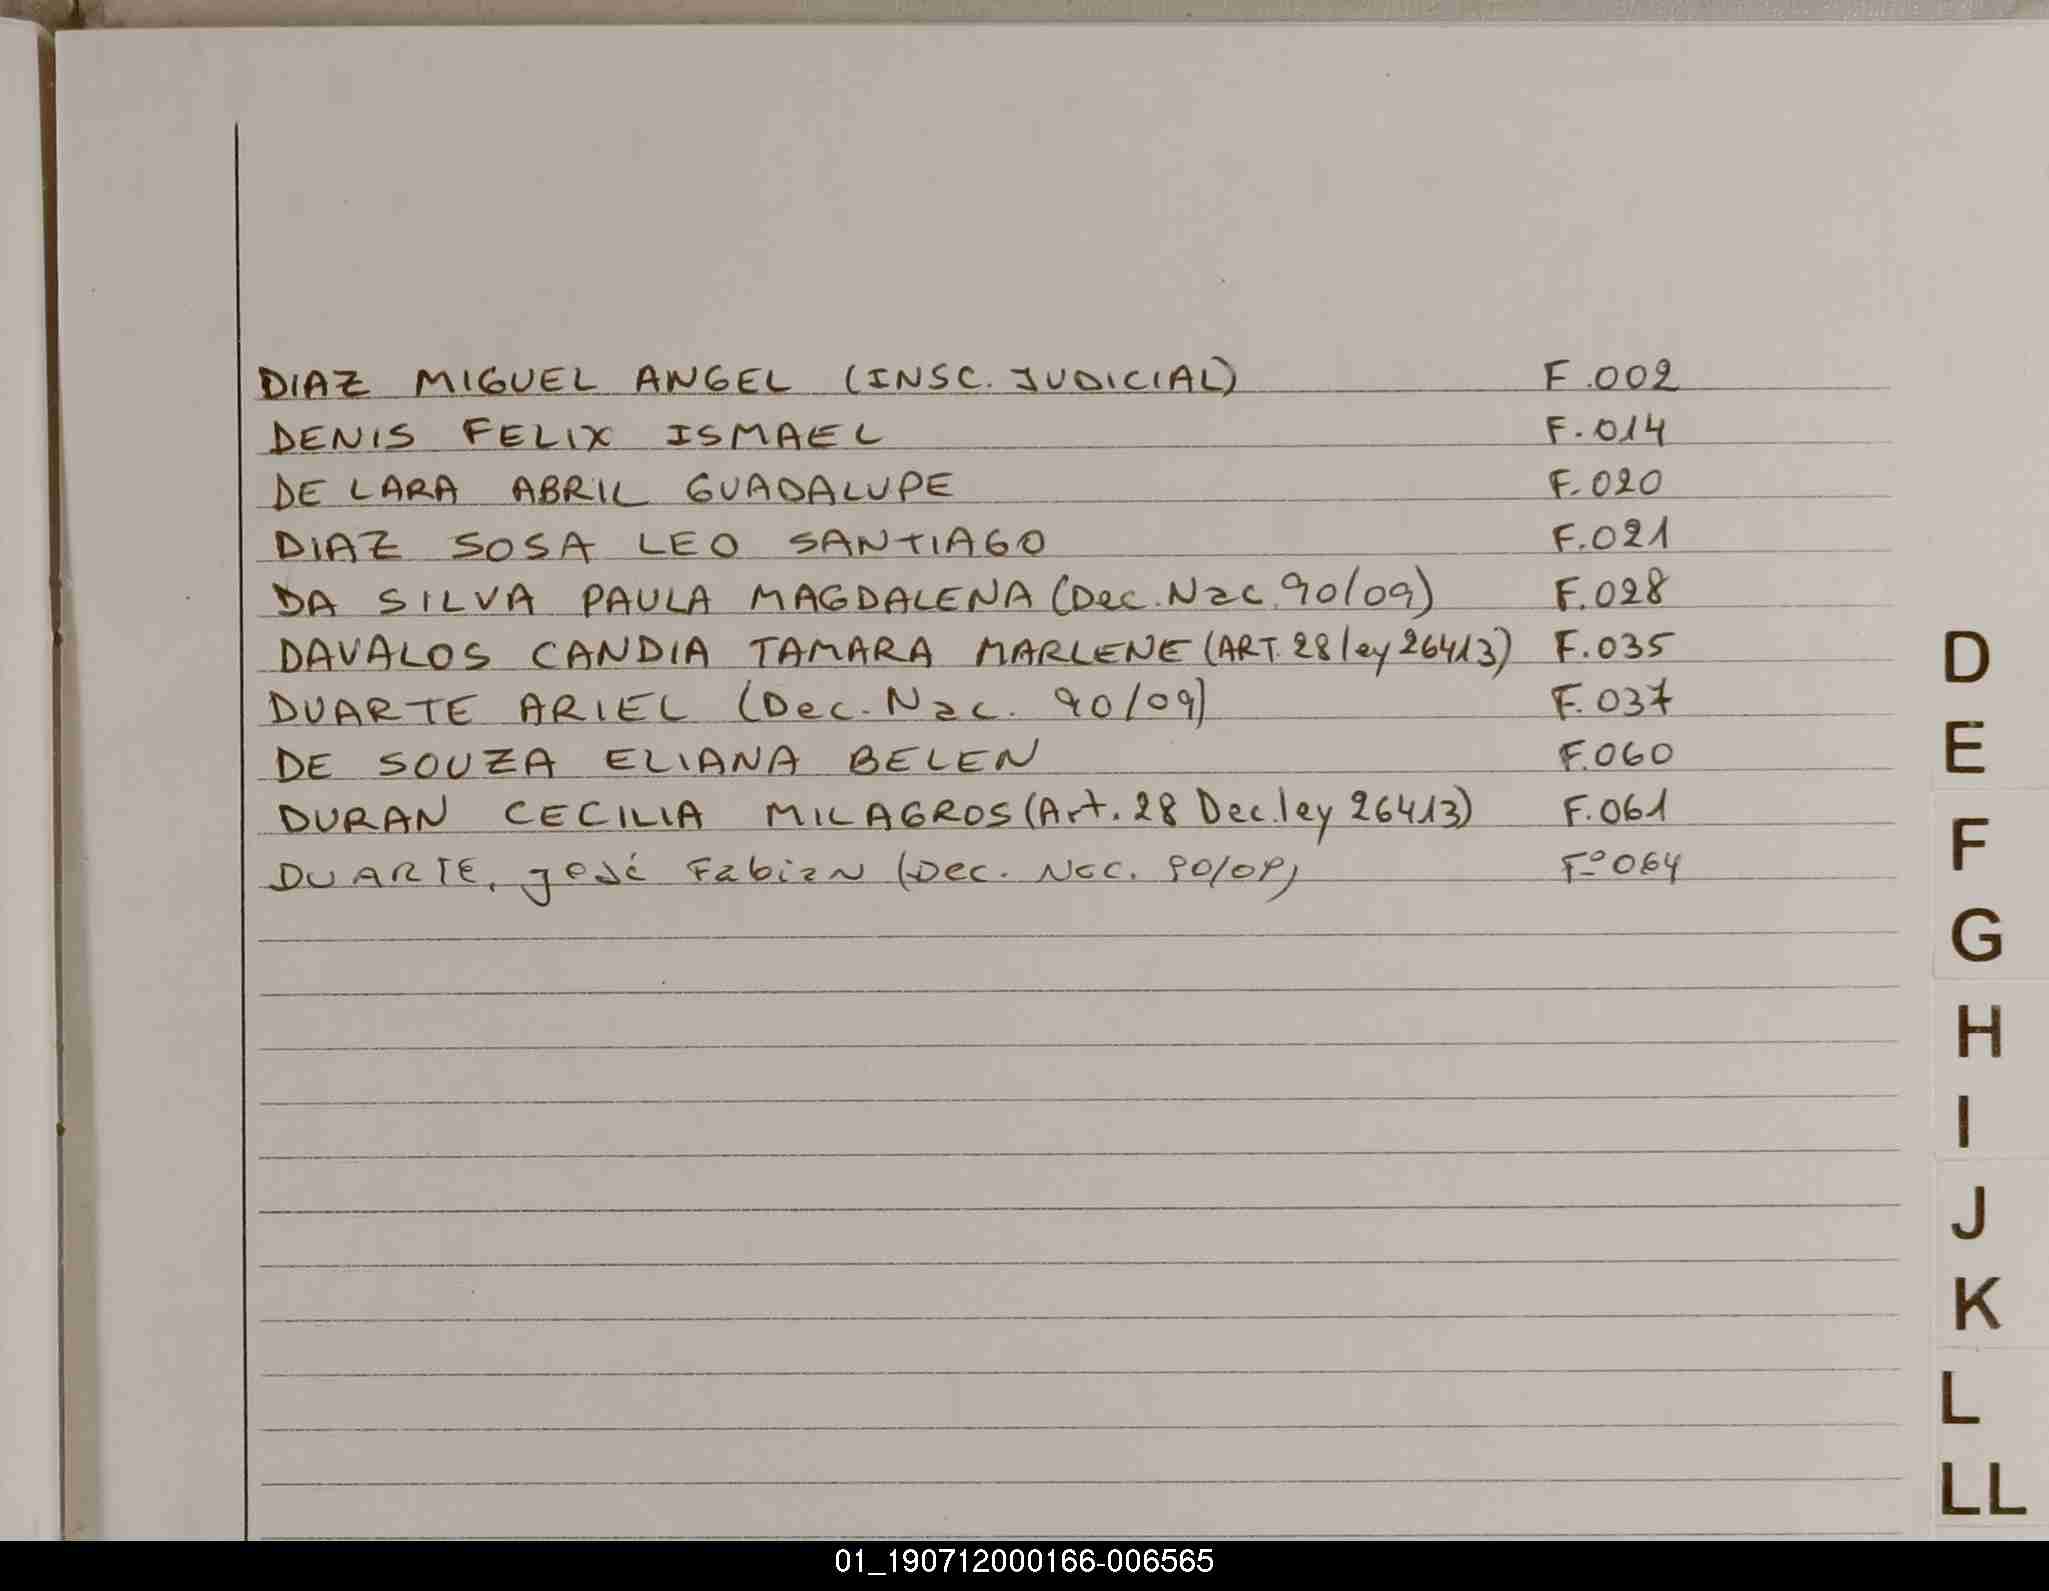 DIAZ MIGUEL ANGEL (INSC. JUDICIAL) F.002
DENIS FELIX ISMAEL F.014
DE LARA ABRIL GUADALUPE F.020
DIAZ SOSA LEO SANTIAGO F.021
DA SILVA PAULA MAGDALENA (Dec. Nac. 90/09) F.028
DAVALOS CANDIA TAMARA MARLENE (ART. 28 ley 26413) F.035
DUARTE ARIEL (Dec. Nac. 90/09) F.037
DE SOUZA ELIANA BELEN F.060
DURAN CECILIA MILAGROS (Art. 28 Dec. ley 26413) F.061
DUARTE, José Fabian (Dec. Nac. 90/09) Fº 064
D
E
F
G
H
I
J
K
L
LL
01_190712000166-006565